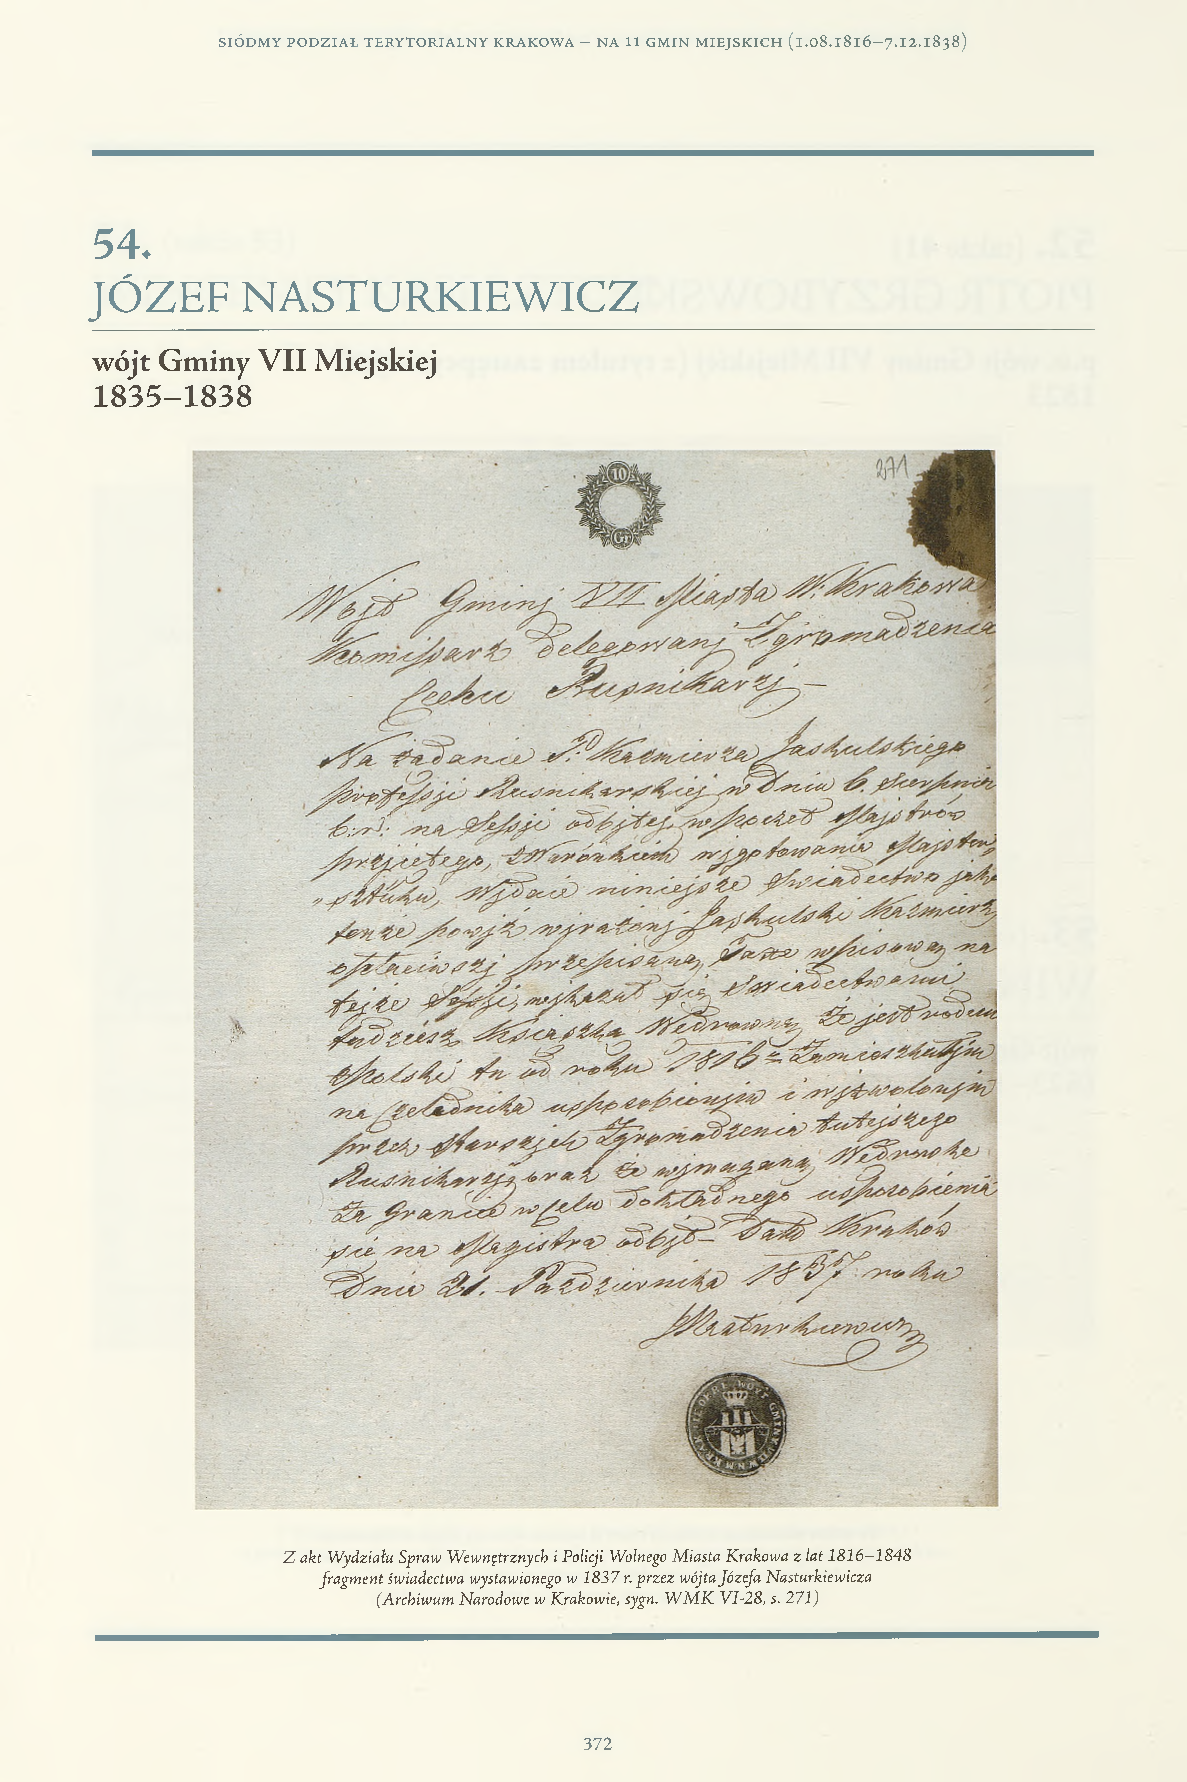 SIÓDMY PODZIAŁ TERYTORIALNY KRAKOWA – NA 11 GMIN MIEJSKICH (1.08.1816–7.12.1838)
54.
JÓZEF NASTURKIEWICZ
wójt Gminy VII Miejskiej
1835–1838
271
10
Gr
Wojt Gminj VII Miasta W: Krakowa
Kommissarz delegowanj Zgromadzenia
Cechu Rusnikarzj –
Na żądanie P. Kazmierza Jaskulskiego
professji Rusnikarskiej w Dniu 6. Sierpnia
b: r: na Sessji odbjtej w poczet Majstrów
przjietego, z Warónkiem wjgotowania Majster
„sztuku, Wjdaie niniejsze Swiadectwo jako
tenże powjż wjrażonj Jaskulski Kazmierz
opłaciwszj przepisaną Taxe wpisową na
tejże Sessji, wjkazał się Swiadectwami
tudziesz Ksiąszką Wedrowną że jest rodem
Polski tu od roku 1816 Zamieszkałjm
na Czeladnika usposobionjm i wjzwolonjm
przez Starszjch Zgromadzenia tutejszego
Rusnikarzj oraz że wjmaganą Wedrowke
Za Granice w Celu dokładnego usposobienia
sie na Magistra odbjł – Dato Kraków
Dnia 21. Pazdziernika 1837 roku
JNasturkiewicz
Z akt Wydziału Spraw Wewnętrznych i Policji Wolnego Miasta Krakowa z lat 1816–1848
fragment świadectwa wystawionego w 1837 r. przez wójta Józefa Nasturkiewicza
(Archiwum Narodowe w Krakowie, sygn. WMK VI-28, s. 271)
372